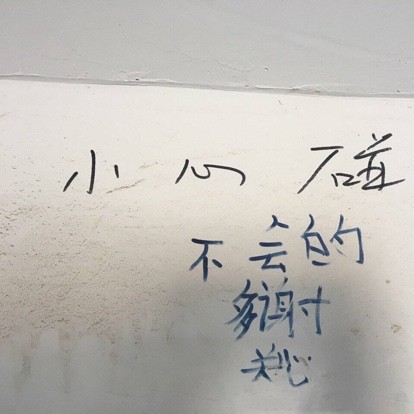 小心碰
不会的
多谢
关心